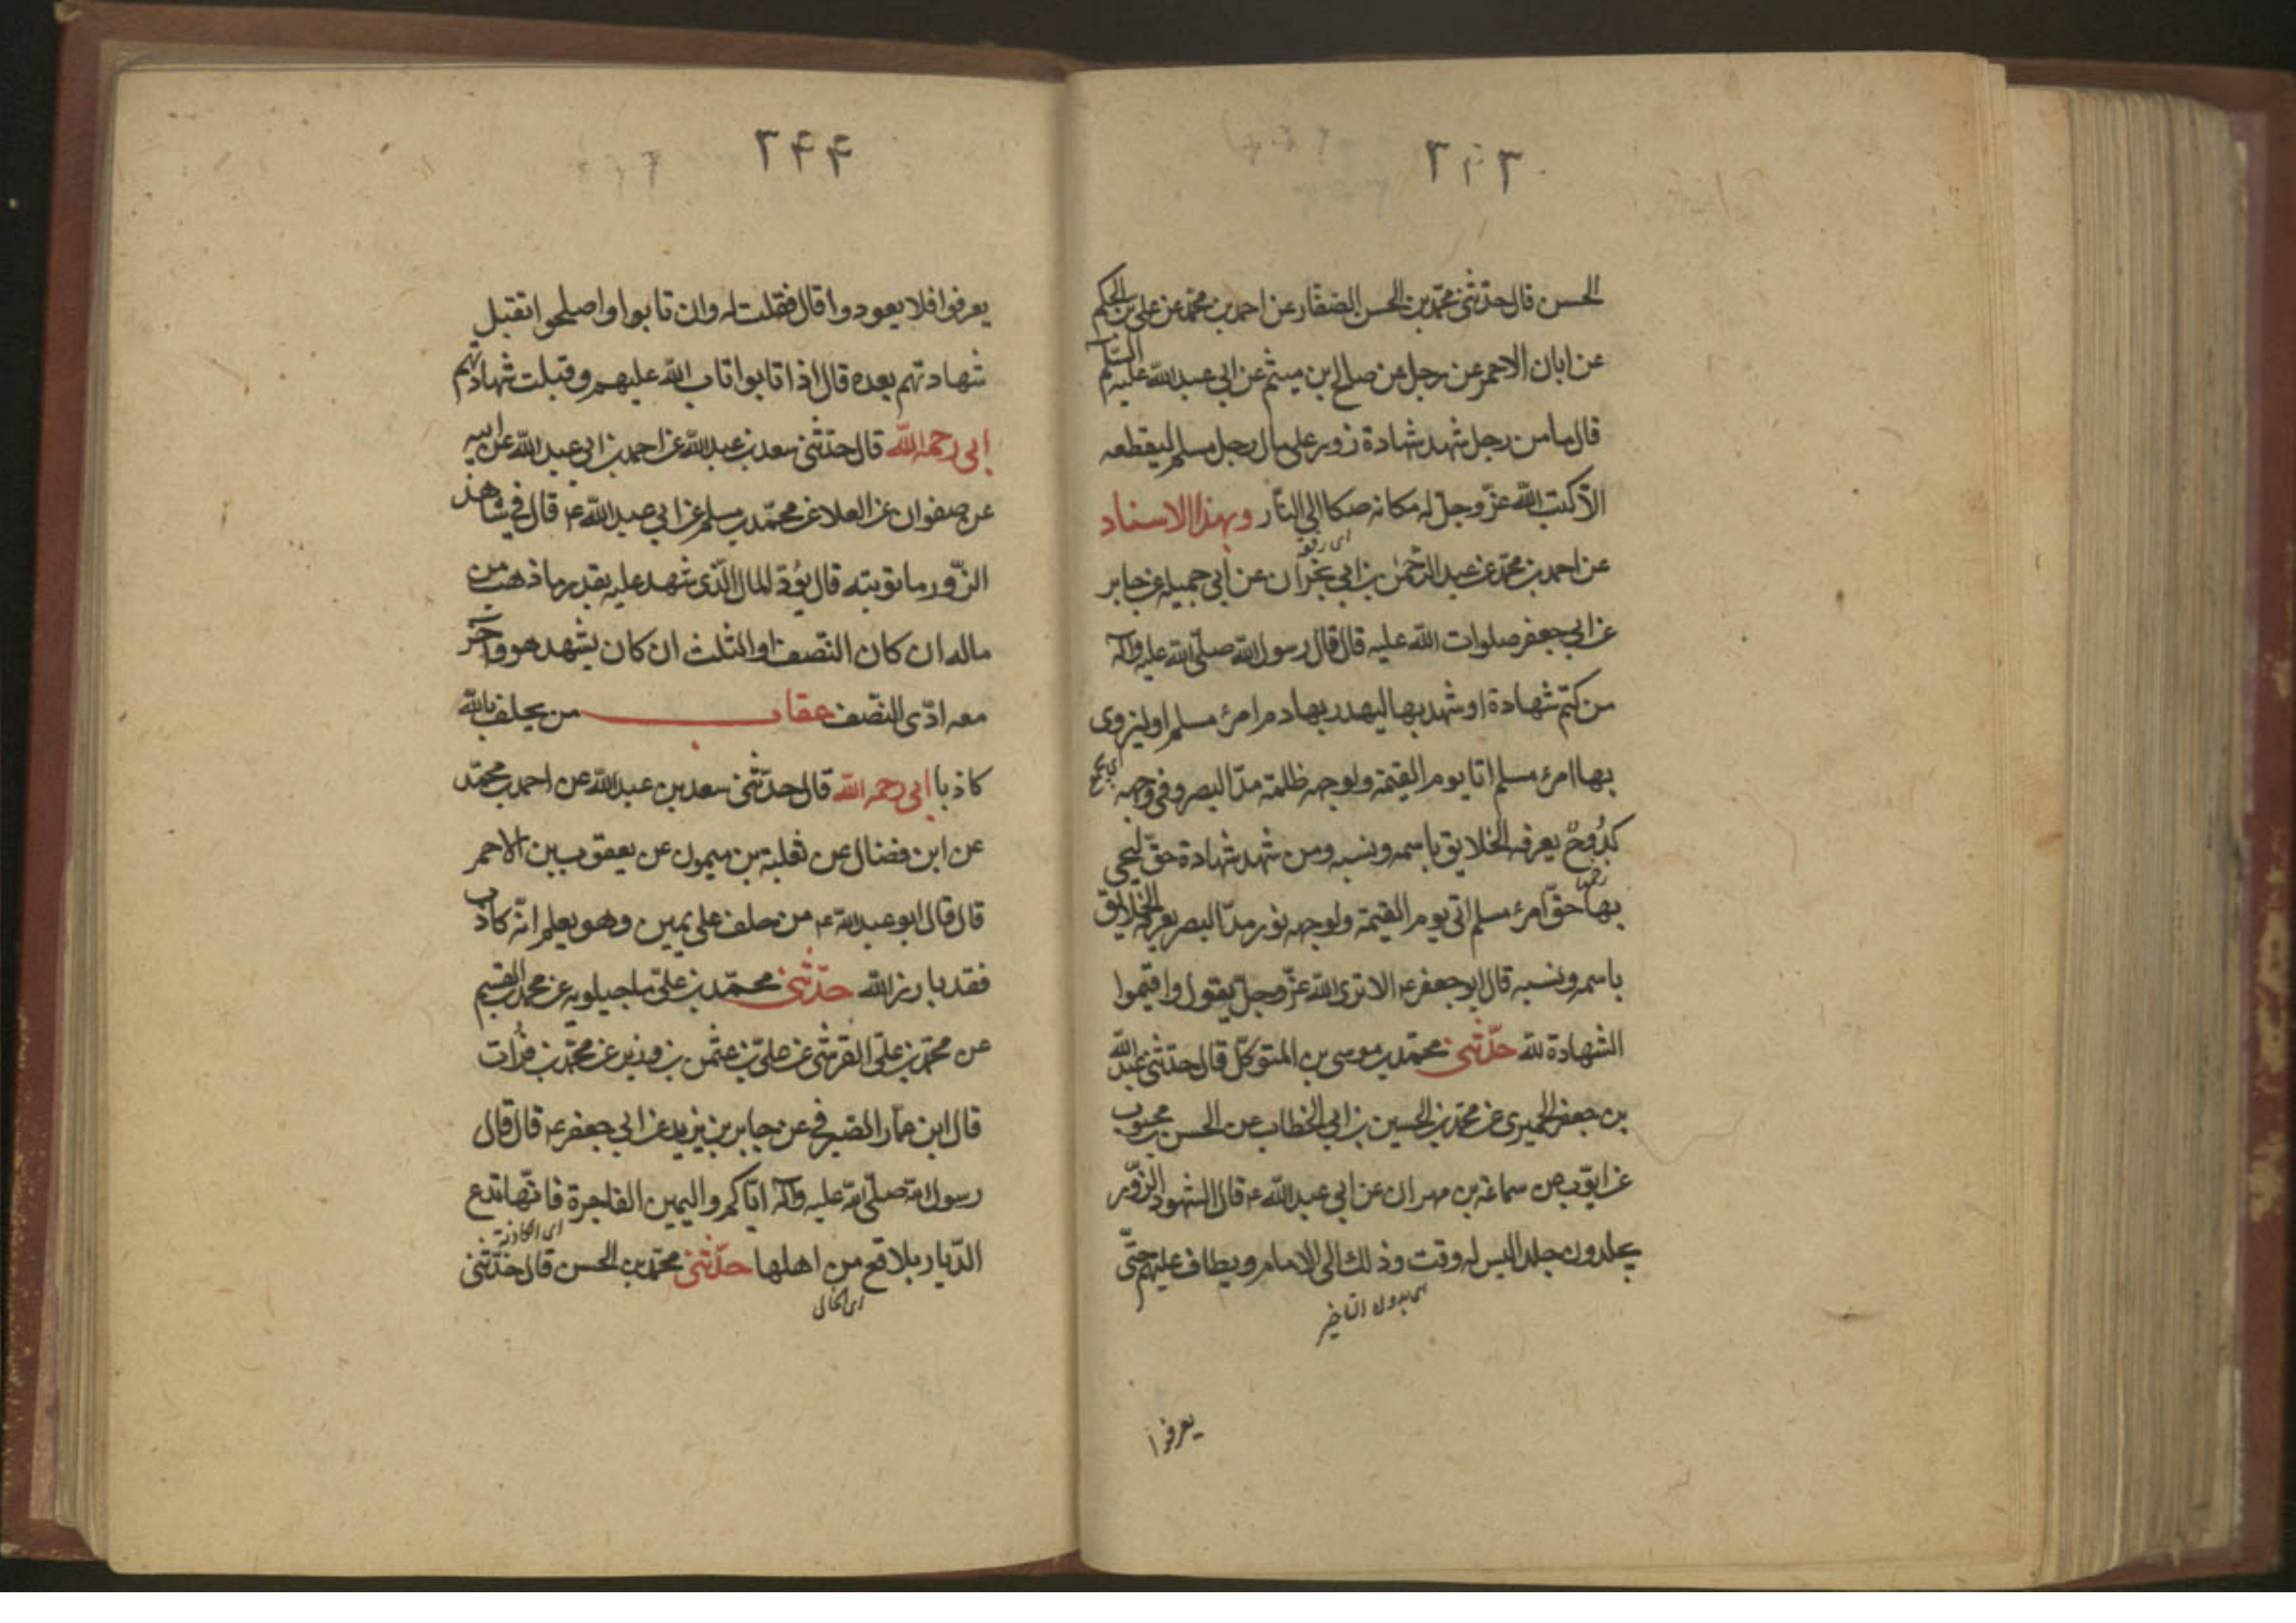 الحسن قال حدثنی محمد بن الحسن الصفار عن احمد بن محمد عن علی بن الحکم
عن ابان الاحمر عن رجل عن صالح بن میثم عن ابی عبد اللّه علیه السّلم
قال ما من رجل شهد شهادة زور علی مال رجل مسلم لیقطعه
الّا کتب اللّه عزّ وجلّ له مکانه صکا الی النّار وبهذا الاسناد
عن احمد بن محمد عن عبد الرّحمٰن بن ابی نجران عن ابی جمیله عن جابر
عن ابی جعفر صلوات اللّه علیه قال قال رسول اللّه صلّی اللّه علیه وآله
من کتم شهادة او شهد بها لیهدر بها دم امرئ مسلم او لیزوی
بها امرئ مسلم اتا یوم القیمة ولوجهه ظلمة مدّ البصر وفی وجهه
کُدُوحٌ یعرفه الخلایق باسمه ونسبه ومن شهد شهادة حقّ لیحیی
بها حقّ امرئ مسلم اتی یوم القیمة ولوجهه نور مدّ البصر یعرفه الخلایق
باسمه ونسبه قال ابو جعفر ع الا تری اللّه عزّ وجلّ یقول واقیموا
الشهادة للّه حدّثنی محمّد بن موسی بن المتوکّل قال حدّثنی عبد اللّه
بن جعفر الحمیری عن محمّد بن الحسین بن ابی الخطاب عن الحسن بن محبوب
عن ایّوب عن سماعة بن مهران عن ابی عبد اللّه ع قال الشهود الزّور
یجلدون جلدا لیس له وقت وذلک الی الامام ویطاف علیهم حتّی
ای بدون التاخیر
یعرفوا
۲۴۴
یعرفوا فلا یعودوا قال فقلت له وان تابوا واصلحوا اتقبل
شهادتهم بعده قال اذا تابوا تاب اللّه علیهم وقبلت شهادتهم
ابی رحمه اللّه قال حدّثنی سعد بن عبد اللّه عن احمد بن ابی عبد اللّه عن ابیه
عن صفوان عن العلا عن محمّد بن مسلم عن ابی عبد اللّه ع قال فی شاهد
الزّور ما توبته قال یؤدّ المال الّذی شهد علیه بقدر ما ذهب من
ماله ان کان النّصف او الثلث ان کان یشهد هو وآخر
معه ادّی النّصف عقاب من یحلف باللّه
کاذبا ابی رحمه اللّه قال حدّثنی سعد بن عبد اللّه عن احمد بن محمّد
عن ابن فضال عن ثعلبة بن میمون عن یعقوب بن الاحمر
قال قال ابو عبد اللّه ع من حلف علی یمین وهو یعلم انّه کاذب
فقد بارز اللّه حدّثنی محمّد بن علیّ ماجیلویه عن محمد بن القسیم
عن محمّد بن علی القرشی عن علیّ بن عثمن بن رزین عن محمّد بن فُرات
قال ابن عمار الصیرفی عن جابر بن یزید عن ابی جعفر ع قال قال
رسول اللّه صلّی اللّه علیه وآله ایّاکم والیمین الفاجرة فانّها تدع
ای الکاذبة
الدّیار بلاقع من اهلها حدّثنی محمّد بن الحسن قال حدّثنی